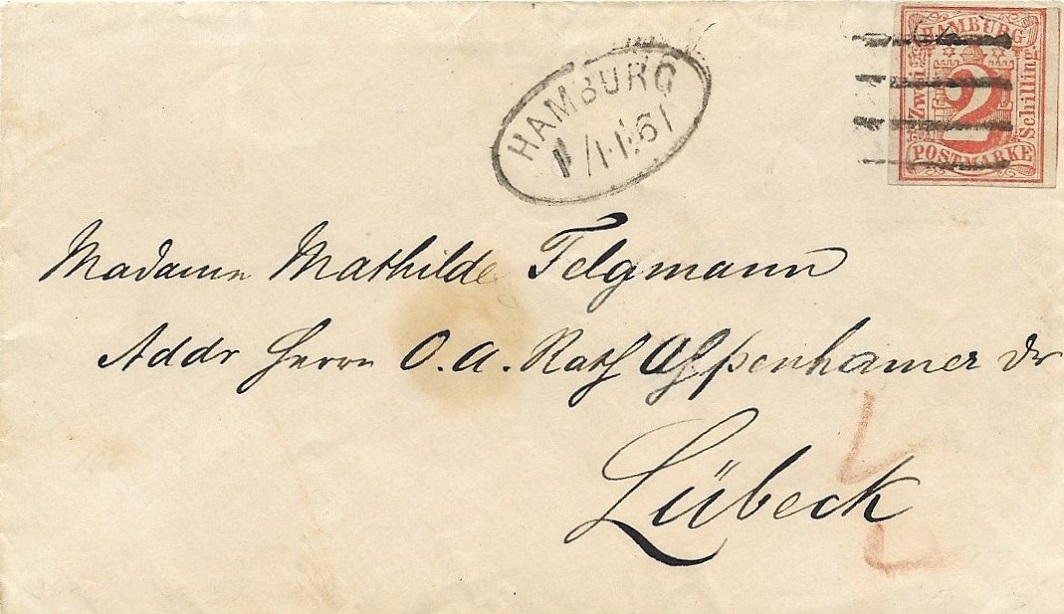 HAMBURG
1/1.61
HAMBURG
Zwei 2 Schilling
POSTMARKE
Madame Mathilde Telgmann
Addr Herrn O. A. Rath Oppenheimer Dr
Lübeck